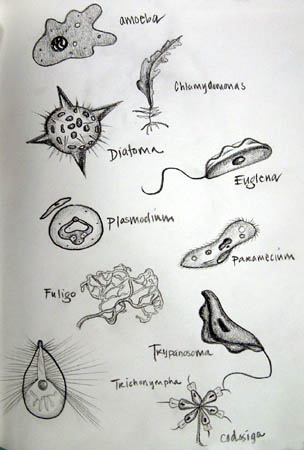 amoeba
Chlamydomonas
Diatoma
Euglena
Plasmodium
Paramecium
Fuligo
Trypanosoma
Trichonympha
codosiga